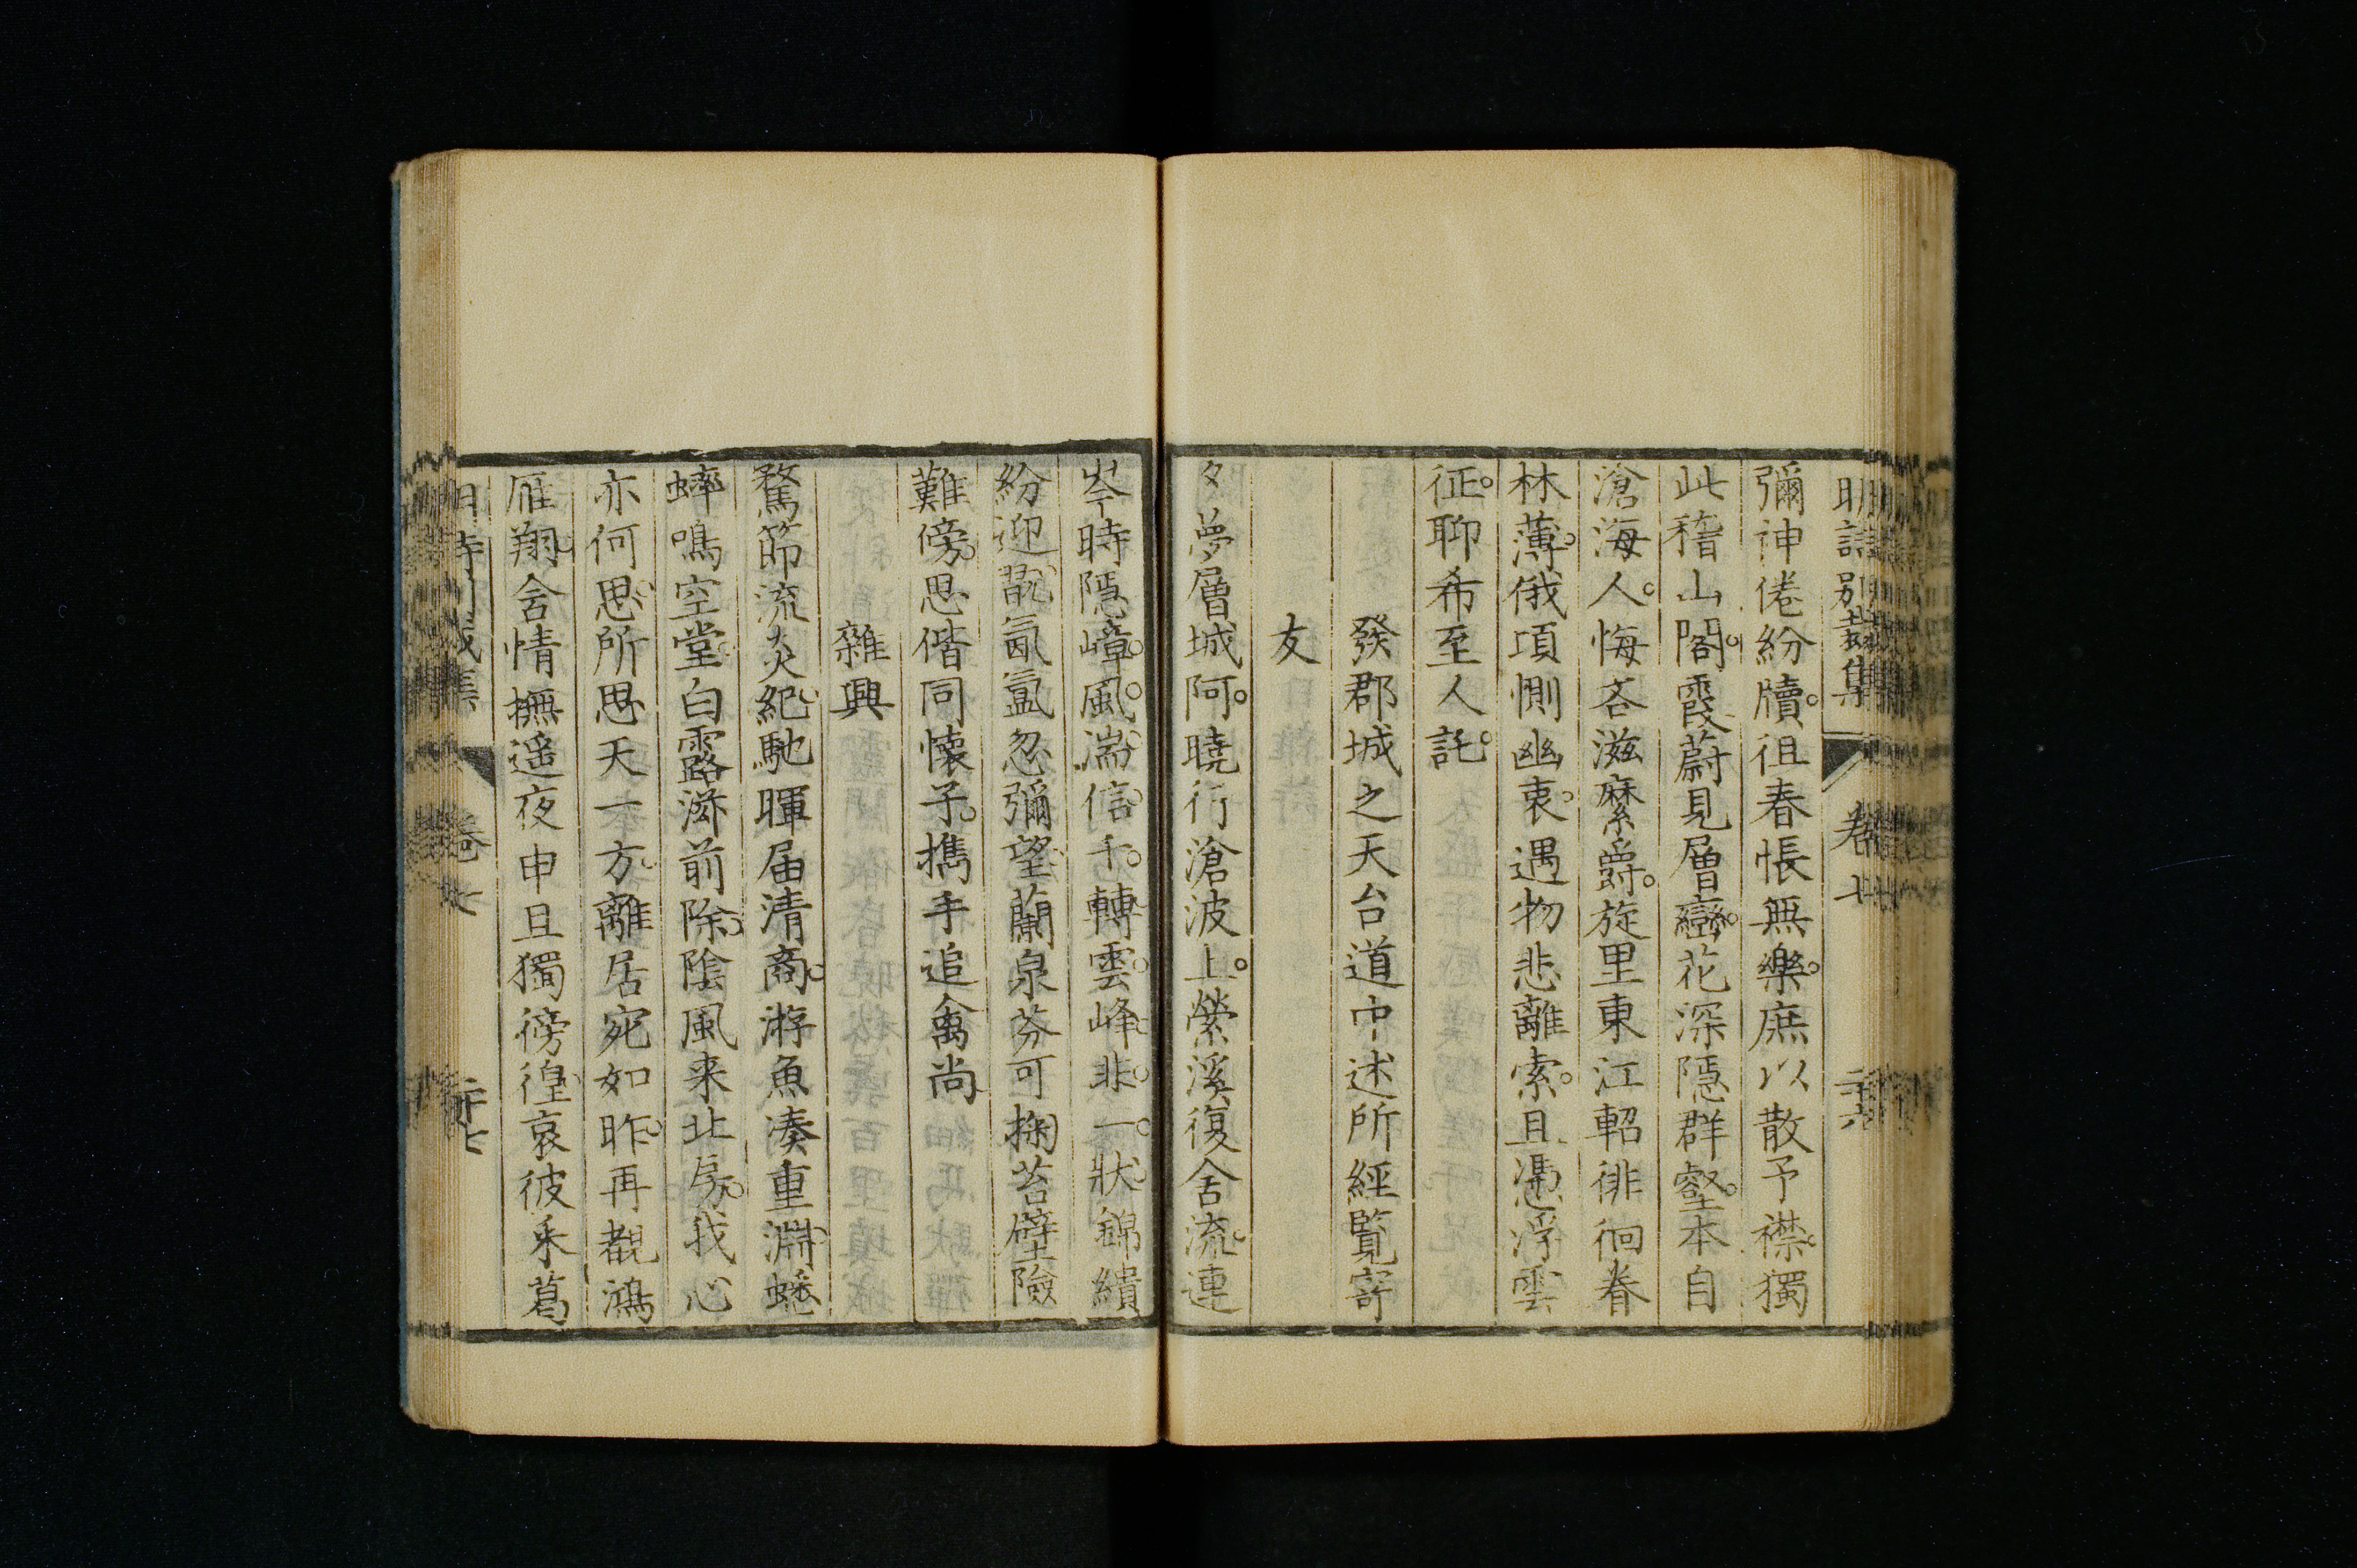 明詩別裁集 卷七 二十六
彌神倦紛牘。徂春悵無樂。庶以散予襟。獨
此稽山閣。霞蔚見層巒。花深隱群壑。本自
滄海人。悔吝滋縻爵。旋里東江軺徘徊眷
林薄。俄頃惻幽衷。遇物悲離索。且憑浮雲
征。聊希至人託。
發郡城之天台道中述所經覽寄
友
夕夢層城阿。曉行滄波上。縈溪復舍流。連
岑時隱嶂。風湍信千轉。雲峰非一狀。錦繢
紛迎翫。氤氳忽彌望。蘭泉芬可掬苔壁險
難傍。思偕同懷子。攜手追禽尚
雜興
騖節流炎紀。馳暉届清商。游魚湊重淵。蟋
蟀鳴空堂。白露滋前除。陰風来北房。我心
亦何思。所思天一方。離居宛如昨。再覩鴻
雁翔。含情撫遥夜申旦獨徬徨。哀彼采葛
卷七 二十七